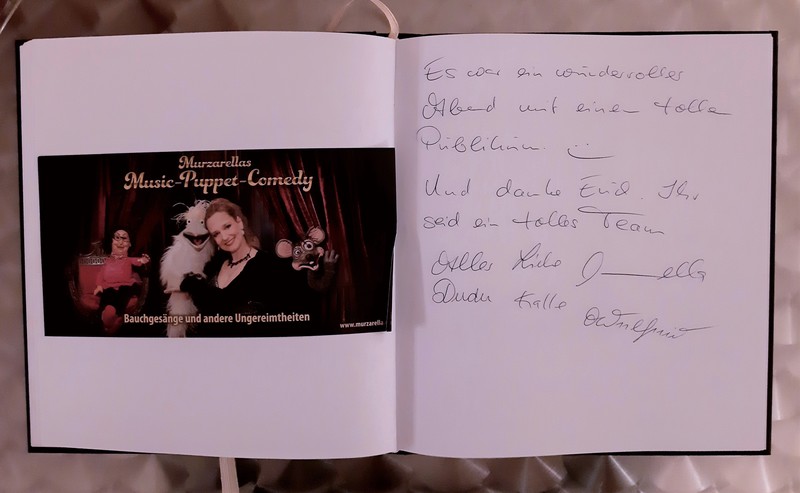 Murzarellas
Music-Puppet-Comedy
Bauchgesänge und andere Ungereimtheiten
www.murzarella
Es war ein wundervoller
Abend mit einem tollen
Publikum.
Und danke Euch. Ihr
seid ein tolles Team
Alles Liebe
Dudu Kalle